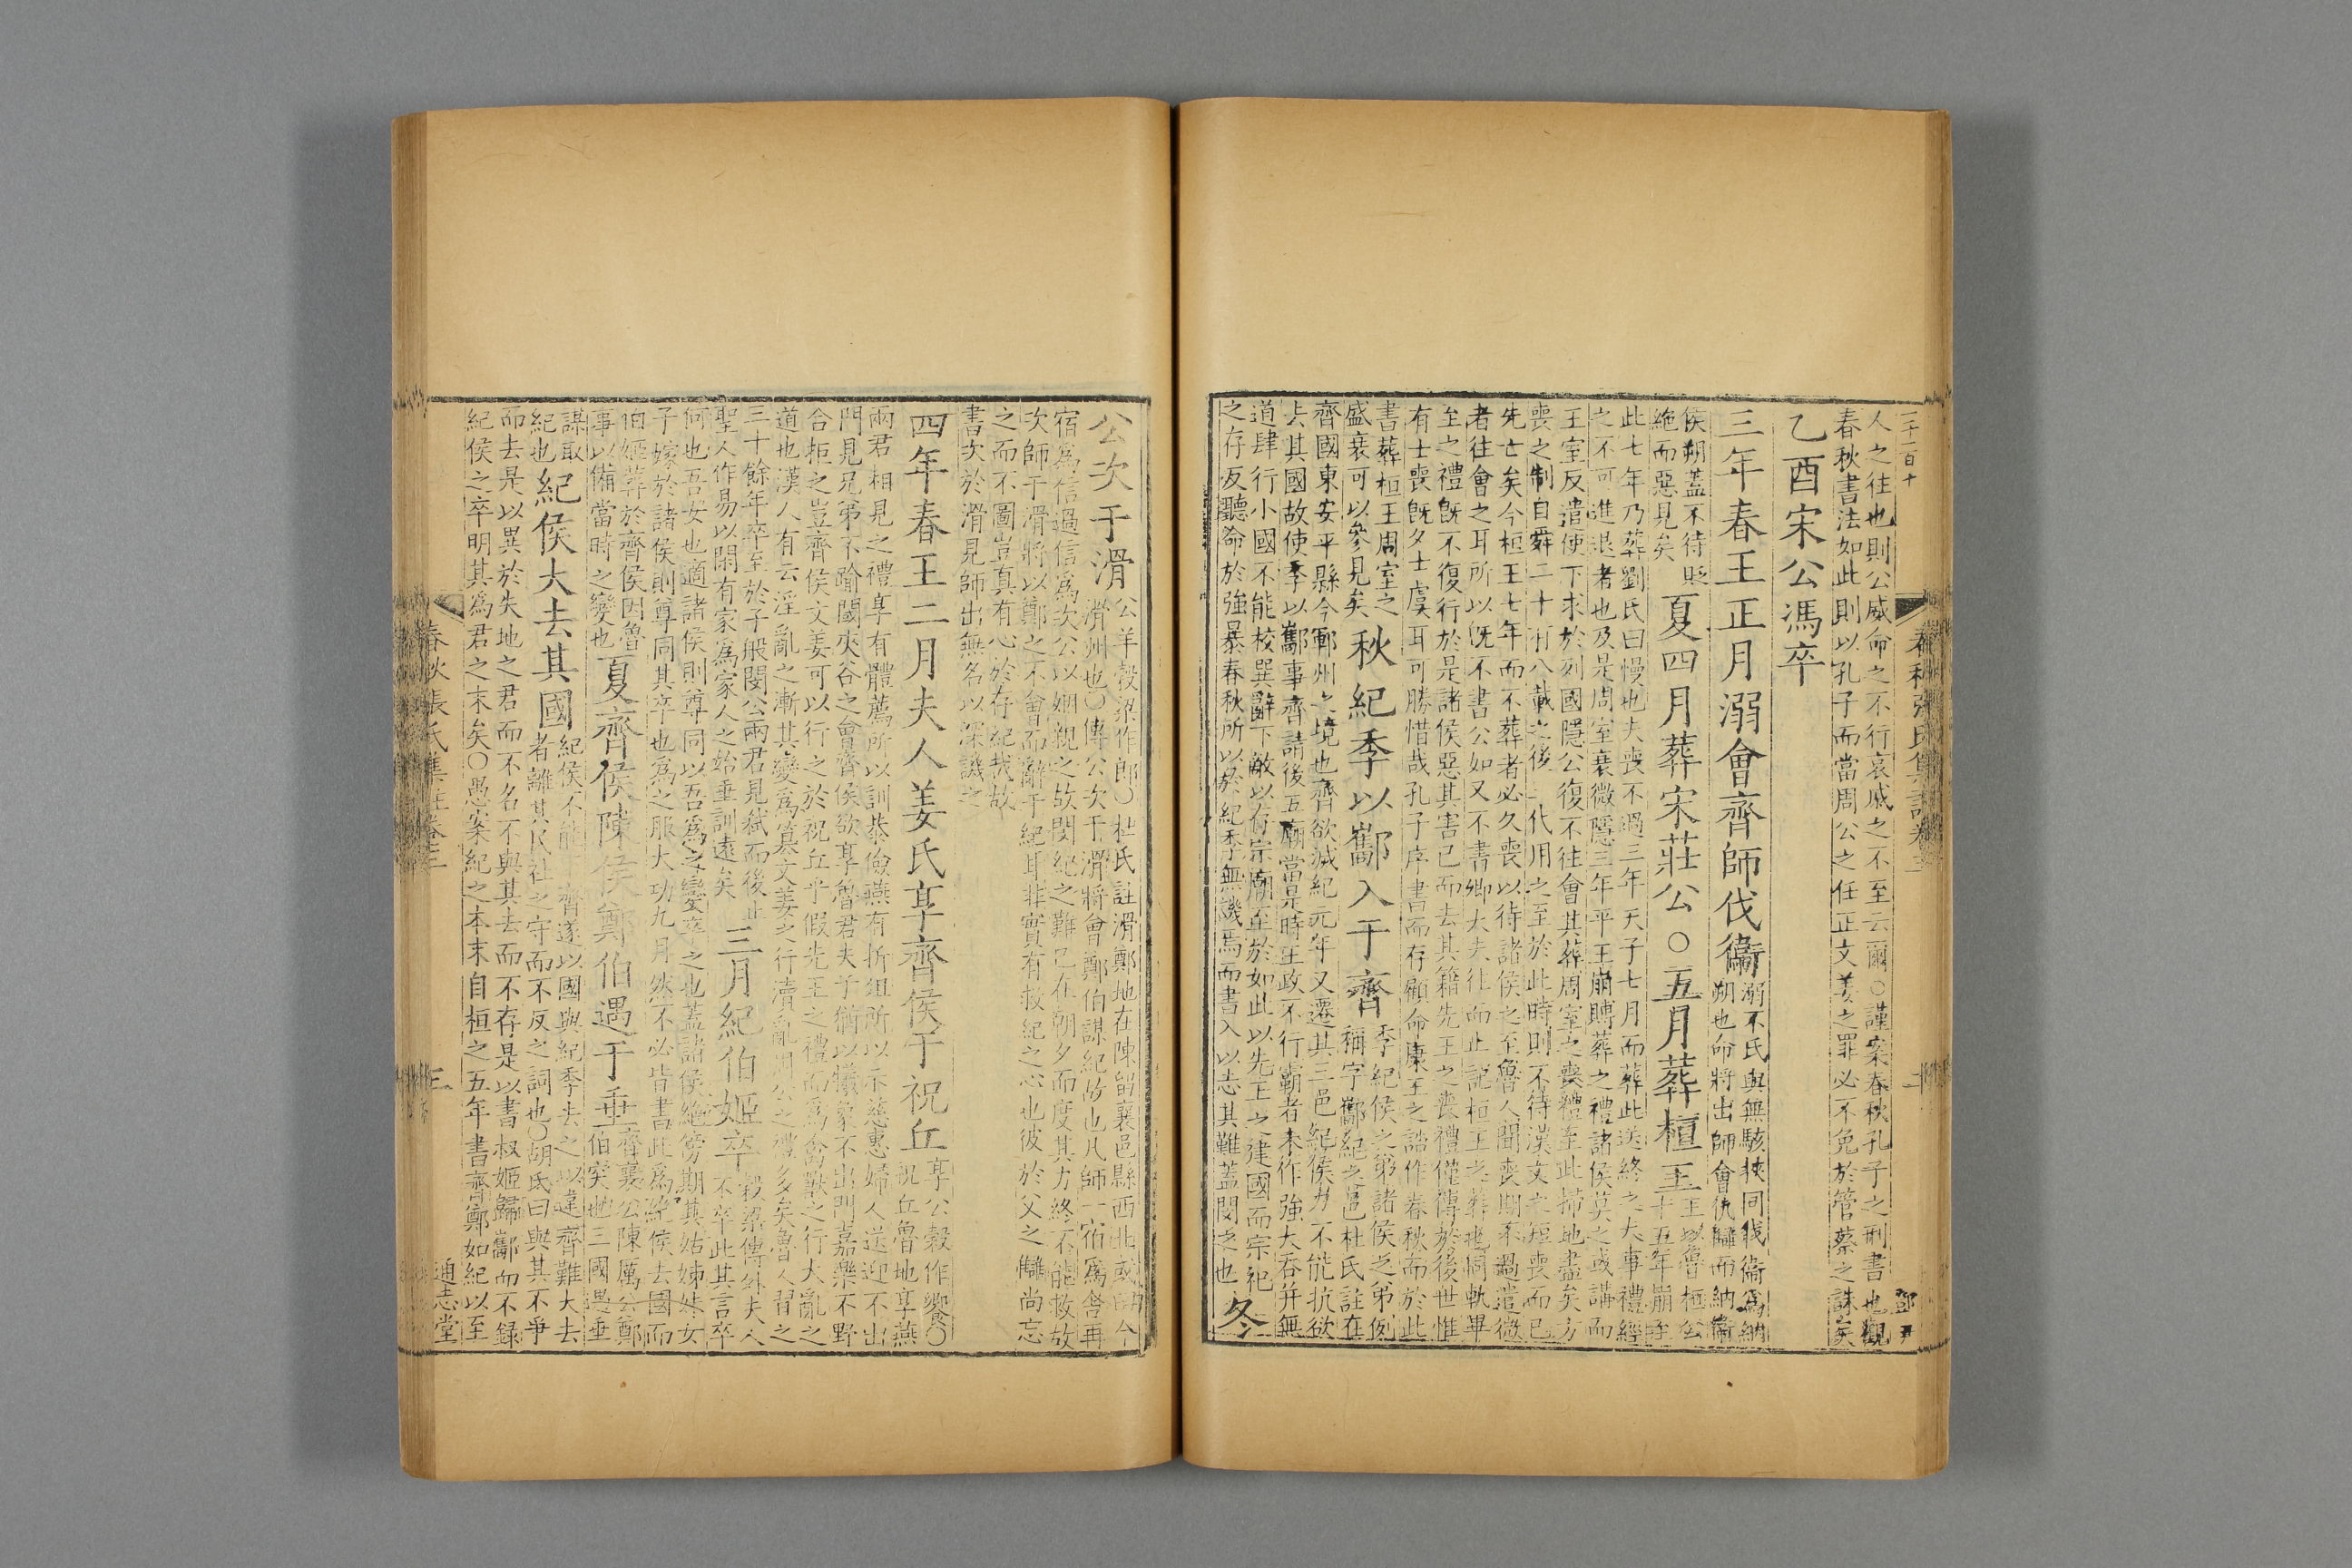 二千一百十
春秋張氏集註卷三
二
鄧尹
人之往也則公威命之不行哀戚之不至云爾○謹案春秋孔子之刑書也觀
春秋書法如此則以孔子而當周公之任正文姜之罪必不免於管蔡之誅矣
乙酉宋公馮卒
三年春王正月溺會齊師伐衞
溺不氏與無駭挾同伐衞爲納
朔也命將出師會仇讎而納衞
侯朔蓋不待貶
絶而惡見矣
夏四月葬宋莊公○五月葬桓王
王以魯桓公
十五年崩至
此七年乃葬劉氏曰慢也夫喪不過三年天子七月而葬此送終之大事禮經
之不可進退者也及是周室衰微隱三年平王崩賵葬之禮諸侯莫之或講而
王室反遣使下求於列國隱公復不往會其葬周室之喪禮至此掃地盡矣方
喪之制自舜二十有八載之後三代用之至於此時則不待漢文之短喪而已
先亡矣今桓王七年而不葬者必久喪以待諸侯之至魯人聞喪期不過遣微
者往會之耳所以旣不書公如又不書卿大夫往而止記桓王之葬也同軌畢
至之禮旣不復行於是諸侯惡其害已而去其籍先王之喪禮僅傳於後世惟
有士喪旣夕士虞耳可勝惜哉孔子序書而存顧命康王之誥作春秋而於此
書葬桓王周室之
盛衰可以參見矣
秋紀季以酅入于齊
季紀侯之弟諸侯之弟例
稱字酅紀之邑杜氏註在
齊國東安平縣今鄆州之境也齊欲滅紀元年又遷其三邑紀侯力不能抗欲
去其國故使季以酅事齊請後五廟當是時王政不行霸者未作強大吞并無
道肆行小國不能校巽辭下敵以存宗廟至於如此以先王之建國而宗祀
之存反聽命於強暴春秋所以於紀季無譏焉而書入以志其難蓋閔之也
冬
公次于滑
公羊穀梁作郎○杜氏註滑鄭地在陳留襄邑縣西北或曰今
滑州也○傳公次于滑將會鄭伯謀紀故也凡師一宿爲舍再
宿爲信過信爲次公以姻親之故閔紀之難已在朝夕而度其力終不能救故
次師于滑將以鄭之不會而辭于紀耳非實有救紀之心也彼於父之讎尚忘
之而不圖豈真有心於存紀哉故
書次於滑見師出無名以深譏之
四年春王二月夫人姜氏享齊侯于祝丘
享公穀作饗○
祝丘魯地享燕
兩君相見之禮享有體薦所以訓恭儉燕有折俎所以示慈惠婦人送迎不出
門見兄弟不踰閾夾谷之會齊侯欲享魯君夫子猶以犧象不出門嘉樂不野
合拒之豈齊侯文姜可以行之於祝丘乎假先王之禮而爲禽獸之行大亂之
道也漢人有云淫亂之漸其變爲簒文姜之行瀆亂周公之禮多矣魯人習之
三十餘年卒至於子般閔公兩君見弑而後止
聖人作易以閑有家爲家人之始垂訓遠矣
三月紀伯姬卒
穀梁傳外夫人
不卒此其言卒
何也吾女也適諸侯則尊同以吾爲之變卒之也蓋諸侯絶傍期其姑姊妹女
子嫁於諸侯則尊同其卒也爲之服大功九月然不必皆書此爲紀侯去國而
伯姬葬於齊侯因魯
事以備當時之變也
夏齊侯陳侯鄭伯遇于垂
齊襄公陳厲公鄭
伯突也三國遇垂
謀取
紀也
紀侯大去其國
紀侯不能 齊遂以國與紀季去之以違齊難大去
者離其民社之守而不反之詞也○胡氏曰與其不爭
而去是以異於失地之君而不名不與其去而不存是以書叔姬歸酅而不録
紀侯之卒明其爲君之末矣○愚案紀之本末自桓之五年書齊鄭如紀以至
春秋張氏集註卷三
三
通志堂